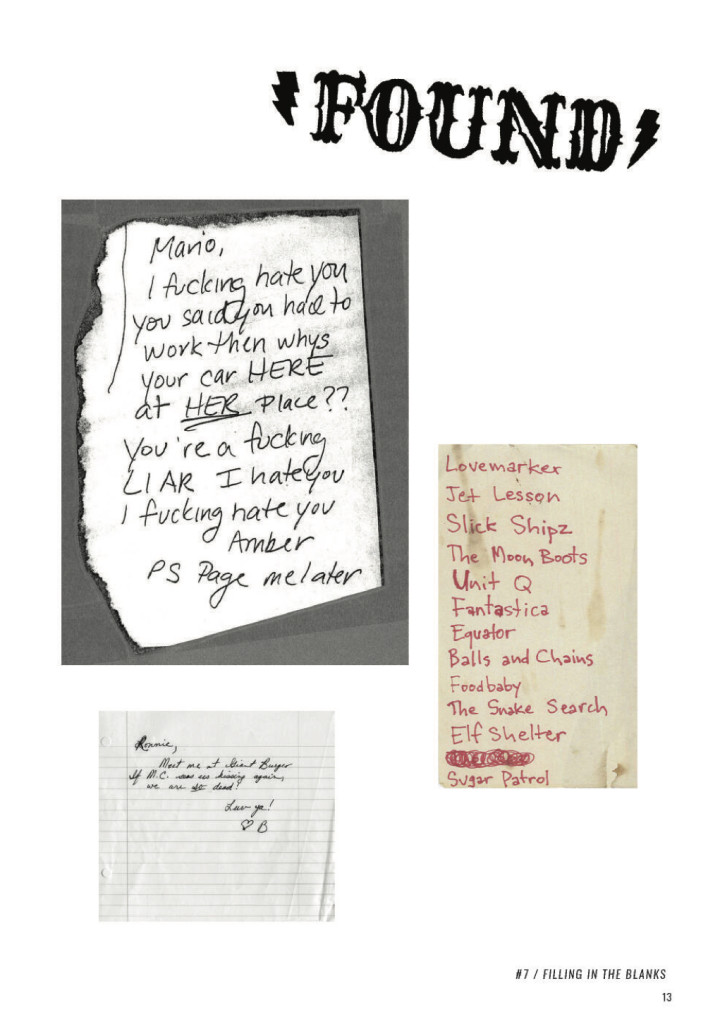 FOUND
Mario,
I fucking hate you
you said you had to
work then whys
your car HERE
at HER place??
You're a fucking
LIAR I hate you
I fucking hate you
Amber
PS Page me later
Lovemarker
Jet Lesson
Slick Shipz
The Moon Boots
Unit Q
Fantastica
Equator
Balls and Chains
Foodbaby
The Snake Search
Elf Shelter
Sugar Patrol
Ronnie,
Meet me at Giant Burger
If M.C. sees us kissing again,
we are so dead!
Luv ya!
♡ B
#7 / FILLING IN THE BLANKS
13